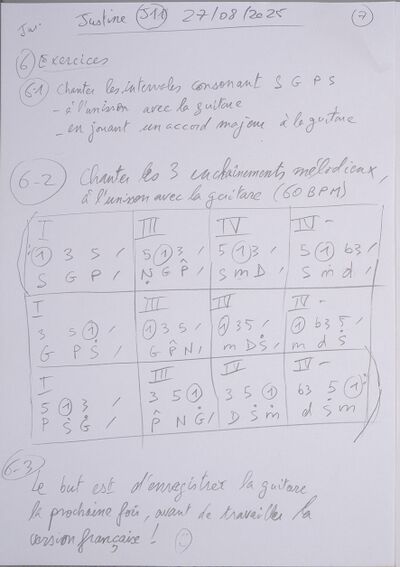 Justine J11 27/08/2025 7
6 Exercices
6-1 Chanter les intervales consonant S G P S
- à l'unison avec la guitare
- en jouant un accord majeur à la guitare
6-2 Chanter les 3 enchaînements mélodieux,
à l'unison avec la guitare (60 BPM)
I III IV IV -
1 3 5 / 5 1 3 / 5 1 3 / 5 1 b3 /
S G P / N G P̂ / S m D / S m d /
I III IV IV -
3 5 1 / 1 3 5 / 1 3 5 / 1 b3 5 /
G P Ṡ / G P̂ N / m D Ṡ / m d Ṡ
I III IV IV -
5 1 3 / 3 5 1 3 5 1 b3 5 1
P Ṡ Ġ / P̂ N Ġ / D Ṡ ṁ d Ṡ ṁ
6-3
Le but est d'enregistrer la guitare
la prochaine fois, avant de travailler la
version française !